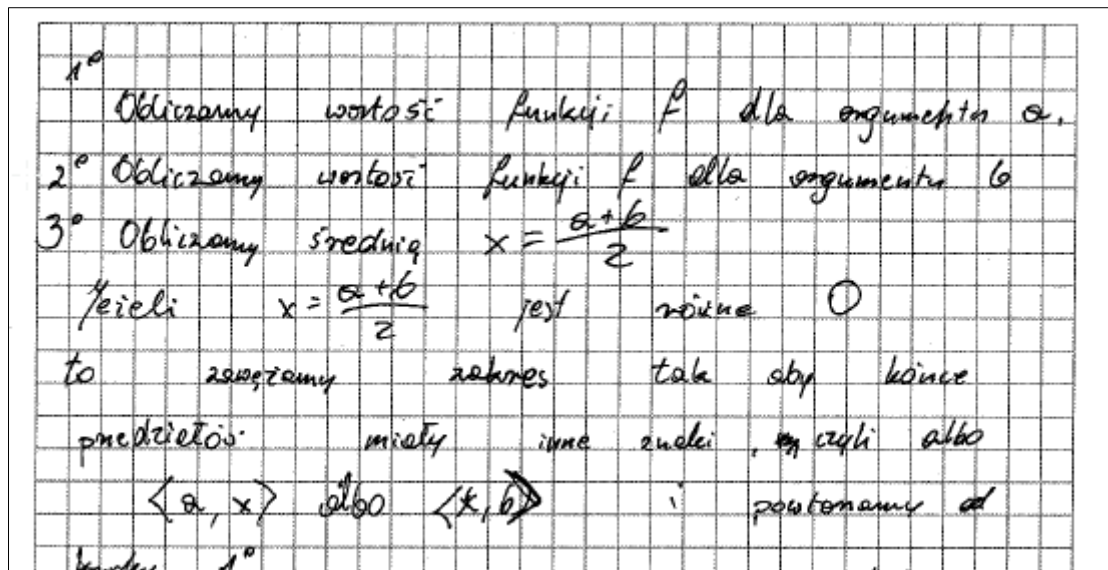 1°
Obliczamy wartość funkcji f dla argumentu a.
2° Obliczamy wartość funkcji f dla argumentu b
3° Obliczamy średnią x = a+b/2
Jeżeli x = a+b/2 jest równe 0
to zawężamy zakres tak aby końce
przedziałów miały inne znaki, czyli albo
<a, x> albo <x, b> i powtarzamy od
1°